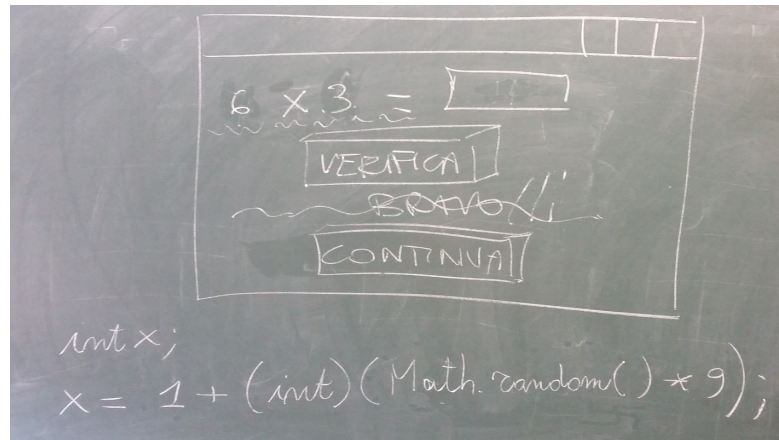 6 x 3 =
VERIFICA
BRAVO!!
CONTINUA
int x;
x = 1 + (int)(Math.random() * 9);